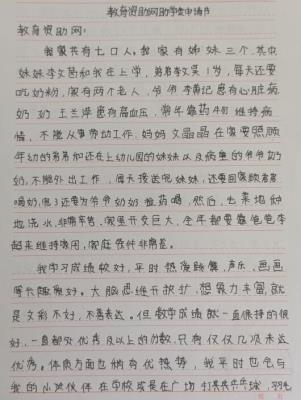 教育资助网助学金申请书
教育资助网：
我家共有七口人。我家有姊妹三个，其中
妹妹李文茜和我在上学，弟弟李昊1岁，每天还要
吃奶粉，家有两个老人，爷爷李 患有心脏病
奶奶王兰萍患有高血压，常年靠药物维持病
情，不能从事劳动工作，妈妈文晶晶在家要照顾
年幼的弟弟和还在上幼儿园的妹妹以及病重的爷爷奶
奶，不能外出工作，每天接送完妹妹，还要回家照看弟弟
喝奶，还要给爷爷奶奶 药喝，然后，去菜地种
地浇水，非常辛苦，家里开支巨大，全年都要靠爸爸李
起来维持费用，家庭条件非常差。
我学习成绩较好，平时热爱跳舞，声乐，画画
等兴趣爱好。大脑思维开放扩，想象力丰富，就
是文彩不好，不善表达。但数学成绩 一直保持的很
好，一直都处优秀及以上的分数，只有仅仅几次未达
优秀。体质方面也稍有优势，我平时也会与
我的小伙伴在学校或是在广场打 乒乓球，羽毛